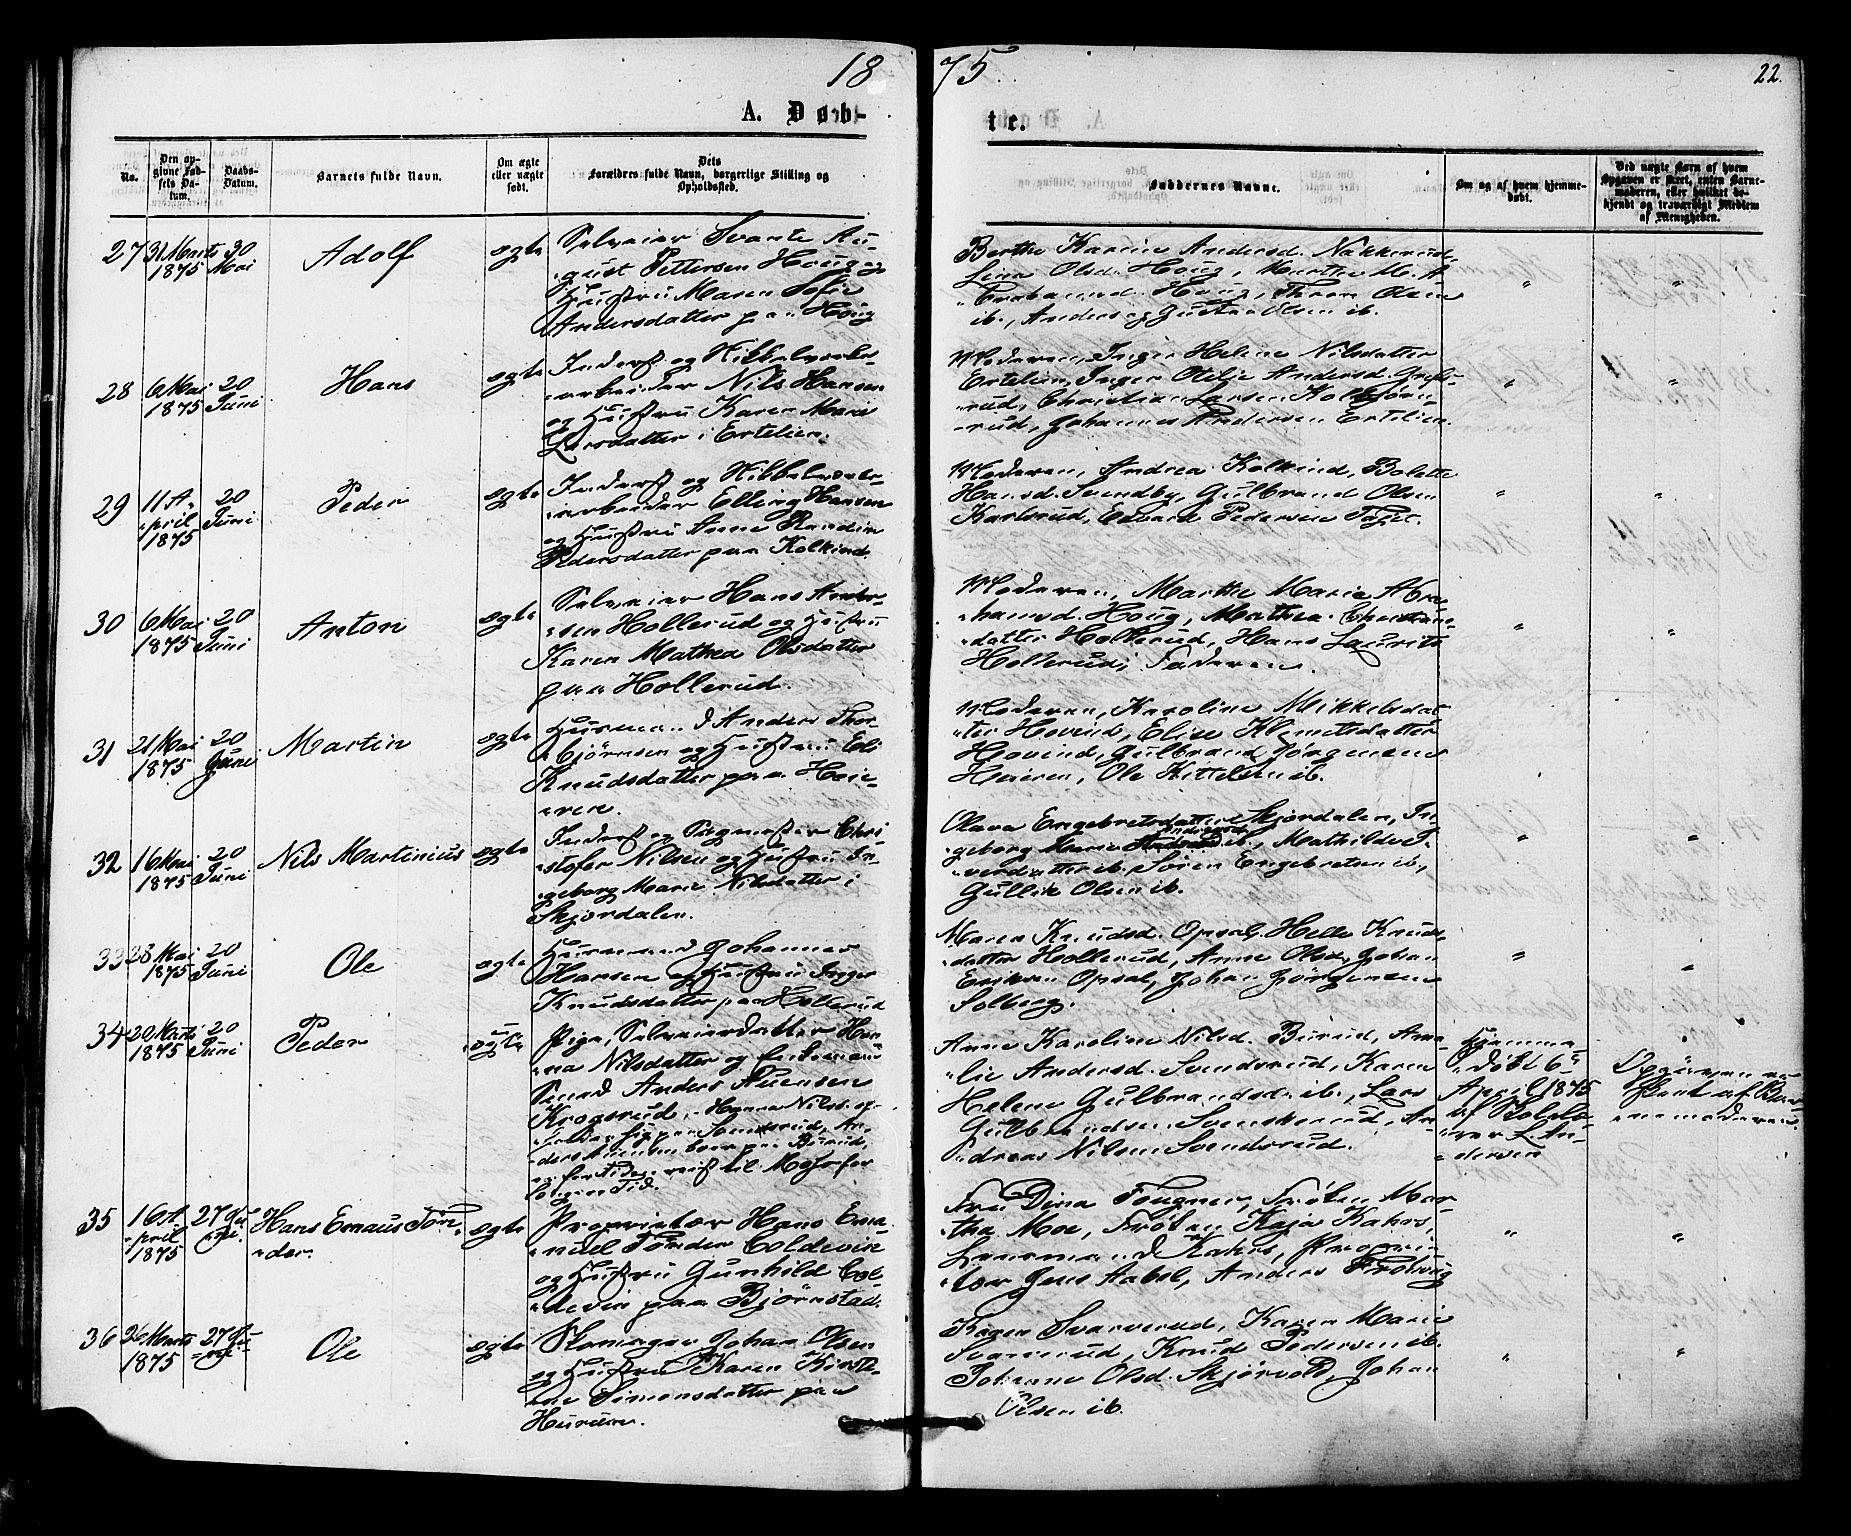 1875
22.
A. Døbte.
No.
Den opgivne Fødsels Datum.
Daabs-Datum.
Barnets fulde Navn.
Om ægte eller uægte født.
Dets Forældres fulde Navn, borgerlige Stilling og Opholdssted.
Faddernes Navne.
Om og af hvem hjemmedøbt.
Ved uægte Børn af hvem Opgaven er skeet, enten Barnemoderen, eller hvilket bekjendt og troværdigt Medlem af Menigheden.
27 31 Marts 1875 30 Mai Adolf ægte
Selveier Svante Au-
gust Pettersen Houg og
Hustru Maren Sofie
Andersdatter paa Houg
Berthe Karine Andersd. Nakkerud,
Lina Olsd. Houg, Marthe M. A
brahamsd. Houg, Thron Olsen
ib., Anders og Gustav Olsen ib.
" "
28 6 Mai 1875 20 Juni Hans ægte
Inderst og Nikkelværks-
arbeider Nils Hansen
og Hustru Karen Marie
Larsdatter i Ertelien.
Moderen, Inger Helene Nilsdatter
Ertelien, Inger Otilje Andersd.
rud, Christian Larsen Kolbjørn-
rud, Johannes Andersen Ertelien.
" "
29 11 April 1875 20 Juni Peder ægte
Inderst og Nikkelværks-
arbeider Elling Hansen
og Hustru Anne Randine
Pedersdatter paa Kolkind.
Moderen, Andrea Kolkind, Bolette
Hansd. Svendby, Gulbrand Olsen
Karlsrud, Edvard Pedersen
" "
30 6 Mai 1875 20 Juni Anton ægte
Selveier Hans Ander-
sen Hollerud og Hustru
Karen Mathea Olsdatter
paa Hollerud.
Moderen, Marthe Marie Abra-
hamsd. Houg, Mathea Christians-
datter Hollerud, Hans Laurits
Hollerud, Faderen.
" "
31 21 Mai 1875 20 Juni Martin ægte
Husmand Anders Thor-
bjørnsen og Hustru Eli
Knudsdatter paa Heie-
ren.
Moderen, Karoline Mikkelsdat-
ter Hovind, Elise Klemetsdatter
Hovind, Gulbrand Jørgensen
Heieren, Ole Kittelsen ib.
" "
32 16 Mai 1875 20 Juni Nils Martinius ægte
Inderst og Sagmester Chri-
stofer Nilsen og Hustru In-
geborg Marie Nilsdatter i
Skjordalen.
Olava Engebretsdatter Skjordalen, In-
geborg Marie Andersd. ib., Mathilde I-
versdatter ib. Søren Engebretsen ib.,
Gullik Olsen ib.
" "
33 28 Mai 1875 20 Juni Ole ægte
Husmand Johannes
Hansen og Hustru Inger
Knudsdatter paa Hollerud
Maren Knudsd. Opsal, Helle Knuds-
datter Hollerud, Anne Olsd., Johan
Eriksen Opsal, Johan Jørgensen
Solberg.
" "
34 20 Marts 1875 20 Juni Peder uægte
Pige, Selveierdatter Han-
na Nilsdatter og Enkemand
Smed Anders Auensen
Krogsrud. Hanna Nilsd. op-
holder sig paa Svendsrud, An-
ders Auensen boer paa Burud,
og for Tiden reist til Moss for
længere Tid.
Anne Karoline Nilsd. Burud, Ama-
lie Andersd. Svendsrud, Karen
Helene Gulbrandsd. ib., Lars
Gulbrandsen Svenskerud, An-
dreas Nilsen Svendsrud.
Hjemme-
døbt 6te
April 1875
af Skolelæ-
rer L. An-
dersen
Opgivelsen er
skeet af Bar-
nemoderen.
35 16 April 1875 27 Juni Hans Emaus Tøn-
der. ægte
Proprietær Hans Ema-
nuel Tønder Coldevin
og Hustru Gunhild Col-
devin paa Bjørnstad.
Fru Dina Fougner, Frøken Mar-
tha Moe, Frøken Kaja Kahrs,
Lensmand Kahrs, Proprie-
tær Jens Aabel, Anders
" "
36 26 Marts 1875 27 Juni Ole ægte
Skomager Johan Olsen
og Hustru Karen Kirsti-
ne Simonsdatter paa
Hurum.
Karen Svarverud, Karen Marie
Svarverud, Knud Pedersen ib.
Johanne Olsd. Skjørvold, Johan
Olsen ib.
" "